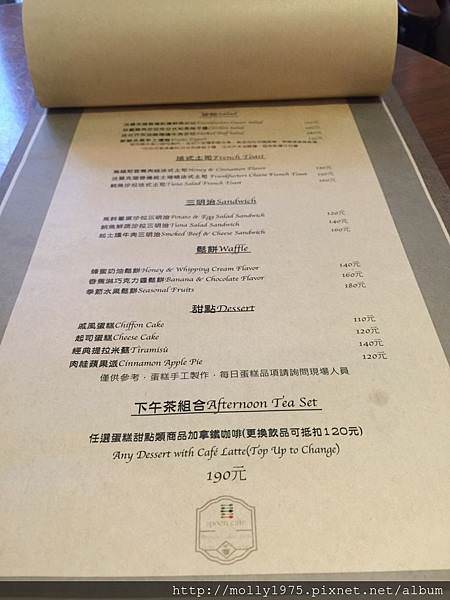 Salad
法式土司French Toast
三明治Sandwich
馬鈴薯蛋沙拉三明治Potato & Egg Salad Sandwich 120元
鮪魚鮮蔬沙拉三明治Tuna Salad Sandwich 140元
起士燻牛肉三明治Smoked Beef & Cheese Sandwich 160元
鬆餅Waffle
蜂蜜奶油鬆餅Honey & Whipping Cream Flavor 140元
香蕉淋巧克力醬鬆餅Banana & Chocolate Flavor 160元
季節水果鬆餅Seasonal Fruits 180元
甜點Dessert
戚風蛋糕Chiffon Cake 110元
起司蛋糕Cheese Cake 120元
經典提拉米蘇Tiramisu 140元
肉桂蘋果派Cinnamon Apple Pie 120元
僅供參考，蛋糕手工製作，每日蛋糕品項請詢問現場人員
下午茶組合Afternoon Tea Set
任選蛋糕甜點類商品加拿鐵咖啡(更換飲品可抵扣120元)
Any Dessert with Café Latte(Top Up to Change)
190元
spoon café
http://molly1975.pixnet.net/album